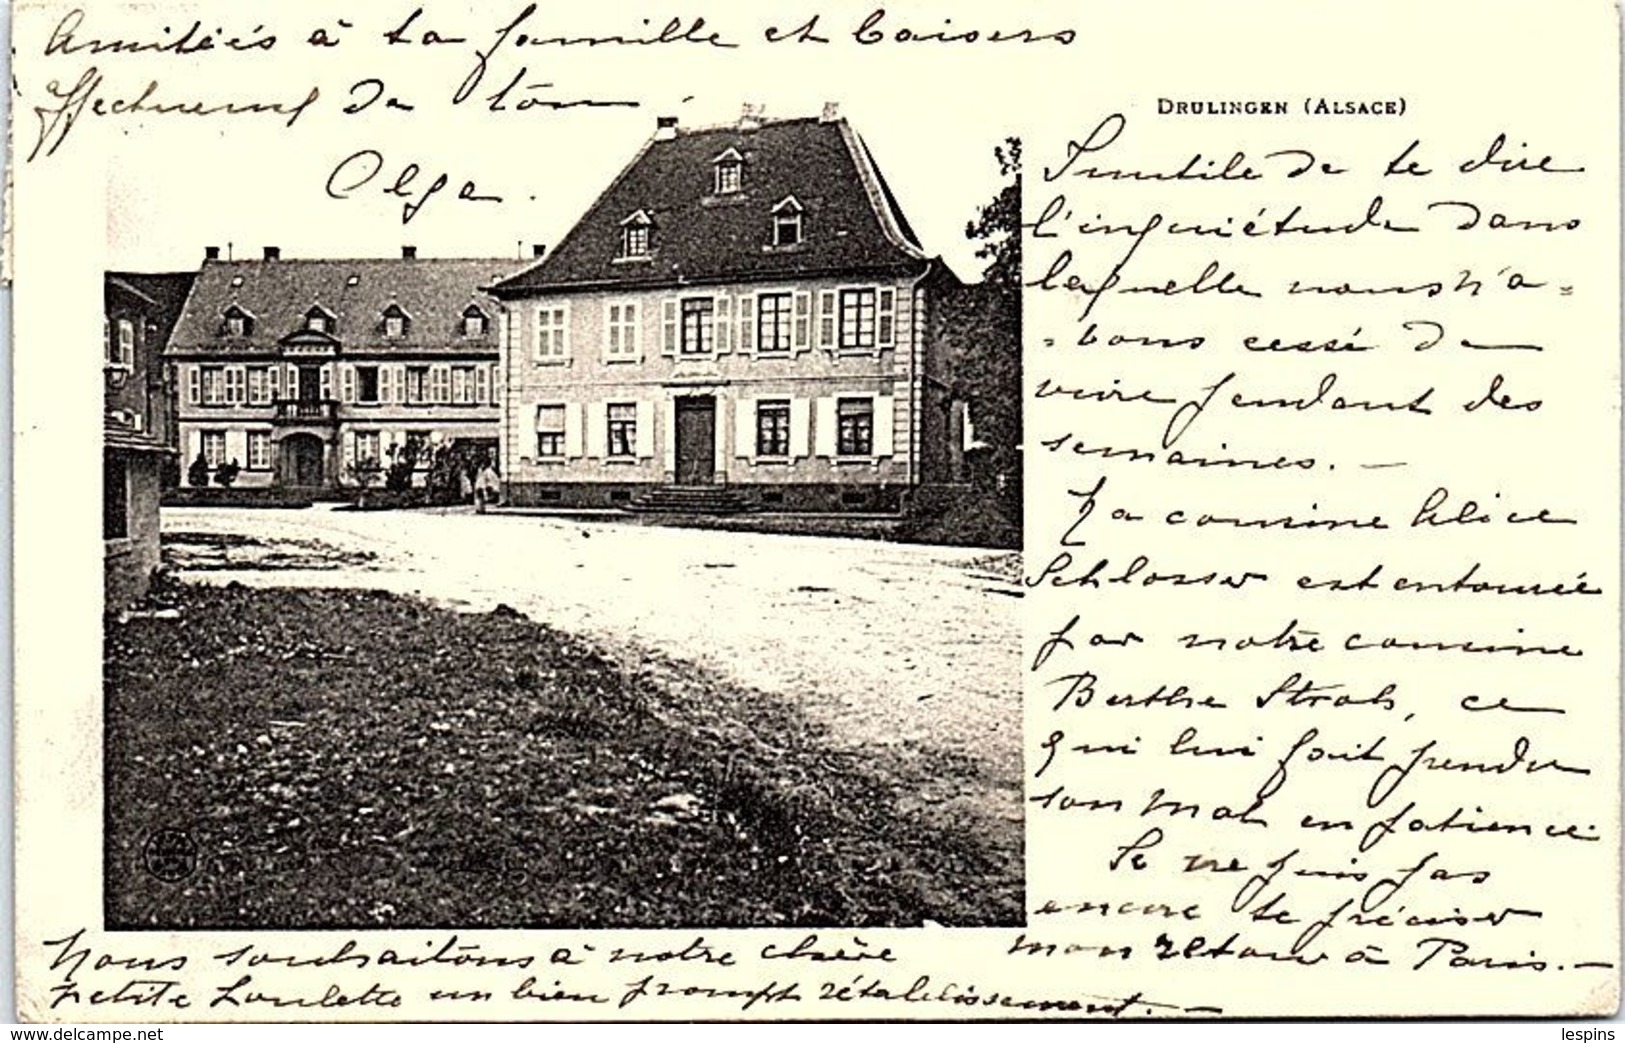 Amitiés à ta famille et baisers
affectueux de ton
Olga.
DRULINGEN (ALSACE)
Inutile de te dire
l'inquiétude dans
laquelle nous n'a-
-vons cessé de
vivre pendant des
semaines. -
La cousine Alice
Schlosser est entourée
par notre cousine
Berthe Strohs, ce
qui lui fait prendre
son mal en patience.
Je ne puis pas
encore te préciser
mon retour à Paris. -
Nous souhaitons à notre chère
petite Loulette un bien prompt rétablissement. -
delcampe.net
lespins